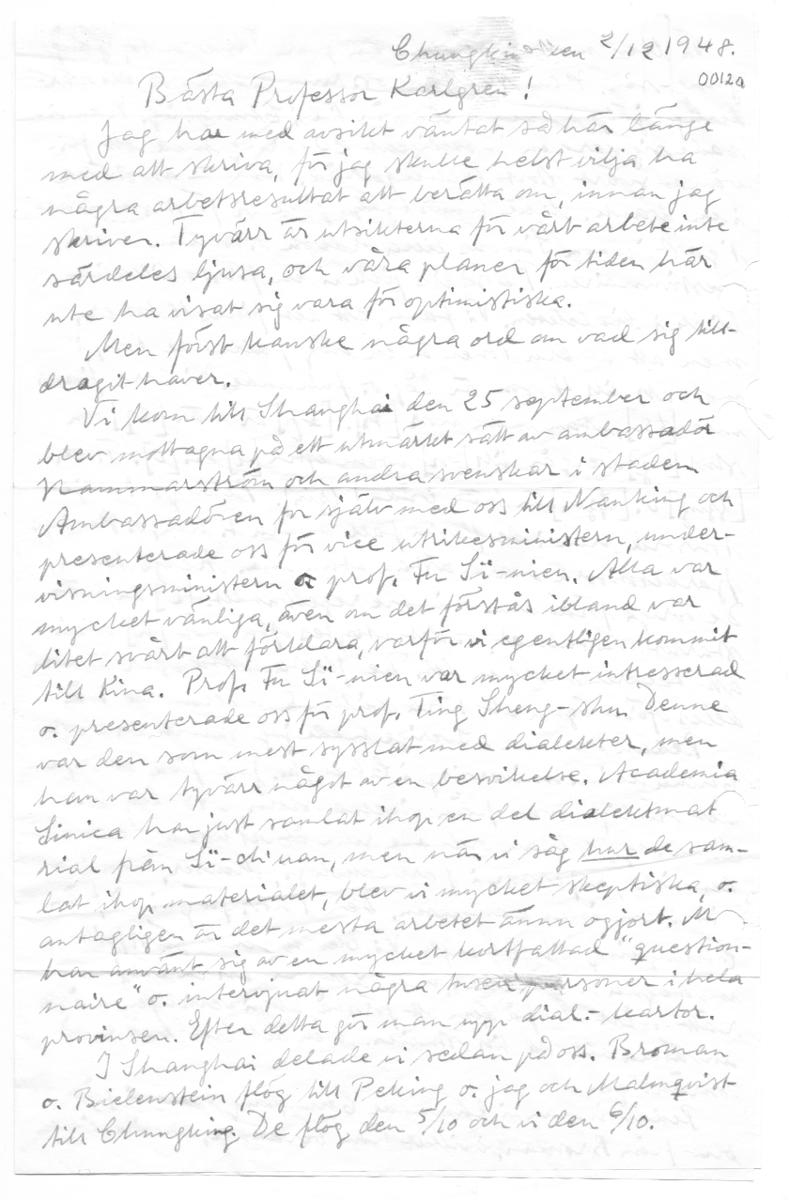 Chungking den 2/12 1948.
0012a
Bästa Professor Karlgren!
Jag har med avsikt väntat så här länge
med att skriva, för jag skulle helst vilja ha
några arbetsresultat att berätta om, innan jag
skriver. Tyvärr är utsikterna för vårt arbete inte
särdeles ljusa, och våra planer för tiden här
ute ha visat sig vara för optimistiska.
Men först kanske några ord om vad sig till-
dragit haver.
Vi kom till Shanghai den 25 september och
blev mottagna på ett utmärkt sätt av ambassadör
Hammarström och andra svenskar i staden.
Ambassadören for själv med oss till Nanking och
presenterade oss för vice utrikesministern, under-
visningsministern o. prof. Fu Sï-nien. Alla var
mycket vänliga, även om det förstås ibland var
litet svårt att förklara, varför vi egentligen kommit
till Kina. Prof. Fu Sï-nien var mycket intresserad
o. presenterade oss för prof. Ting Sheng-shu. Denne
var den som mest sysslat med dialekter, men
han var tyvärr något av en besvikelse. Academia
Sinica har just samlat ihop en del dialektmat
rial från Sï-ch'uan, men när vi såg hur de sam-
lat ihop materialet, blev vi mycket skeptiska, o.
antagligen är det mesta arbetet ännu ogjort. M
har använt sig av en mycket kortfattad "question-
naire" o. intervjuat några tusen personer i hela
provinsen. Efter detta gör man upp dial.-kartor.
I Shanghai delade vi sedan på oss. Broman
o. Bielenstein flög till Peking o. jag och Malmqvist
till Chungking. De flög den 5/10 och vi den 6/10.